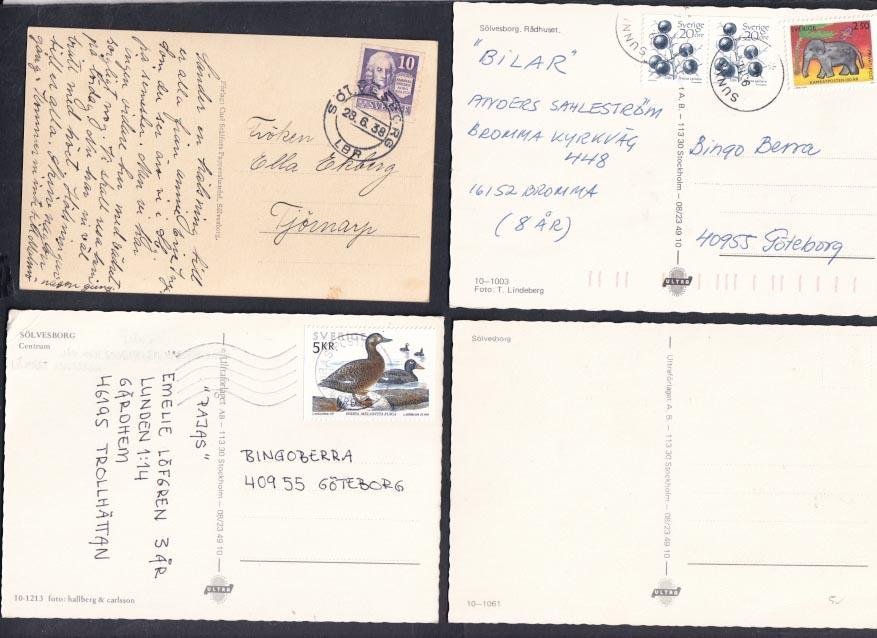 Sänder en hälsning till
er alla från
som du ser är vi i Sö
på semester. Men vi har
ingen vidare tur med vädret
sorgligt nog. Vi skall resa hem
på lördag. Du har nu väl
bra med
till er alla.
gång kommer ni inte till Malmö
någon gång
Förlag: Carl Ståhlfors Pappershandel, Sölvesborg.
10
SVERIGE
SÖLVESBORG
28.6.38
LBR
Fröken
Ella Ekberg
Tjörnarp
Sölvesborg. Rådhuset.
"BILAR"
ANDERS SAHLESTRÖM
BROMMA KYRKVÄG
448
16152 BROMMA
(8 ÅR)
10—1003
Foto: T. Lindeberg
t A. B. — 113 30 Stockholm — 08/23 49 10
ULTRA
Sverige
20 öre
Sverige
20 öre
SUNN
SUNN
2.50
Bingo Berra
40955 Göteborg
SÖLVESBORG
Centrum
"PAJAS"
EMELIE LÖFGREN 3 ÅR
LUNDEN 1:14
GÄRDHEM
46195 TROLLHÄTTAN
10-1213 foto: hallberg & carlsson
Ultraförlaget AB — 113 30 Stockholm — 08/23 49 10
ULTRA
SVERIGE
5 KR
BINGOBERRA
40955 GÖTEBORG
Sölvesborg
Ultraförlaget A. B. — 113 30 Stockholm — 08/23 49 10
ULTRA
10—1061
5:-